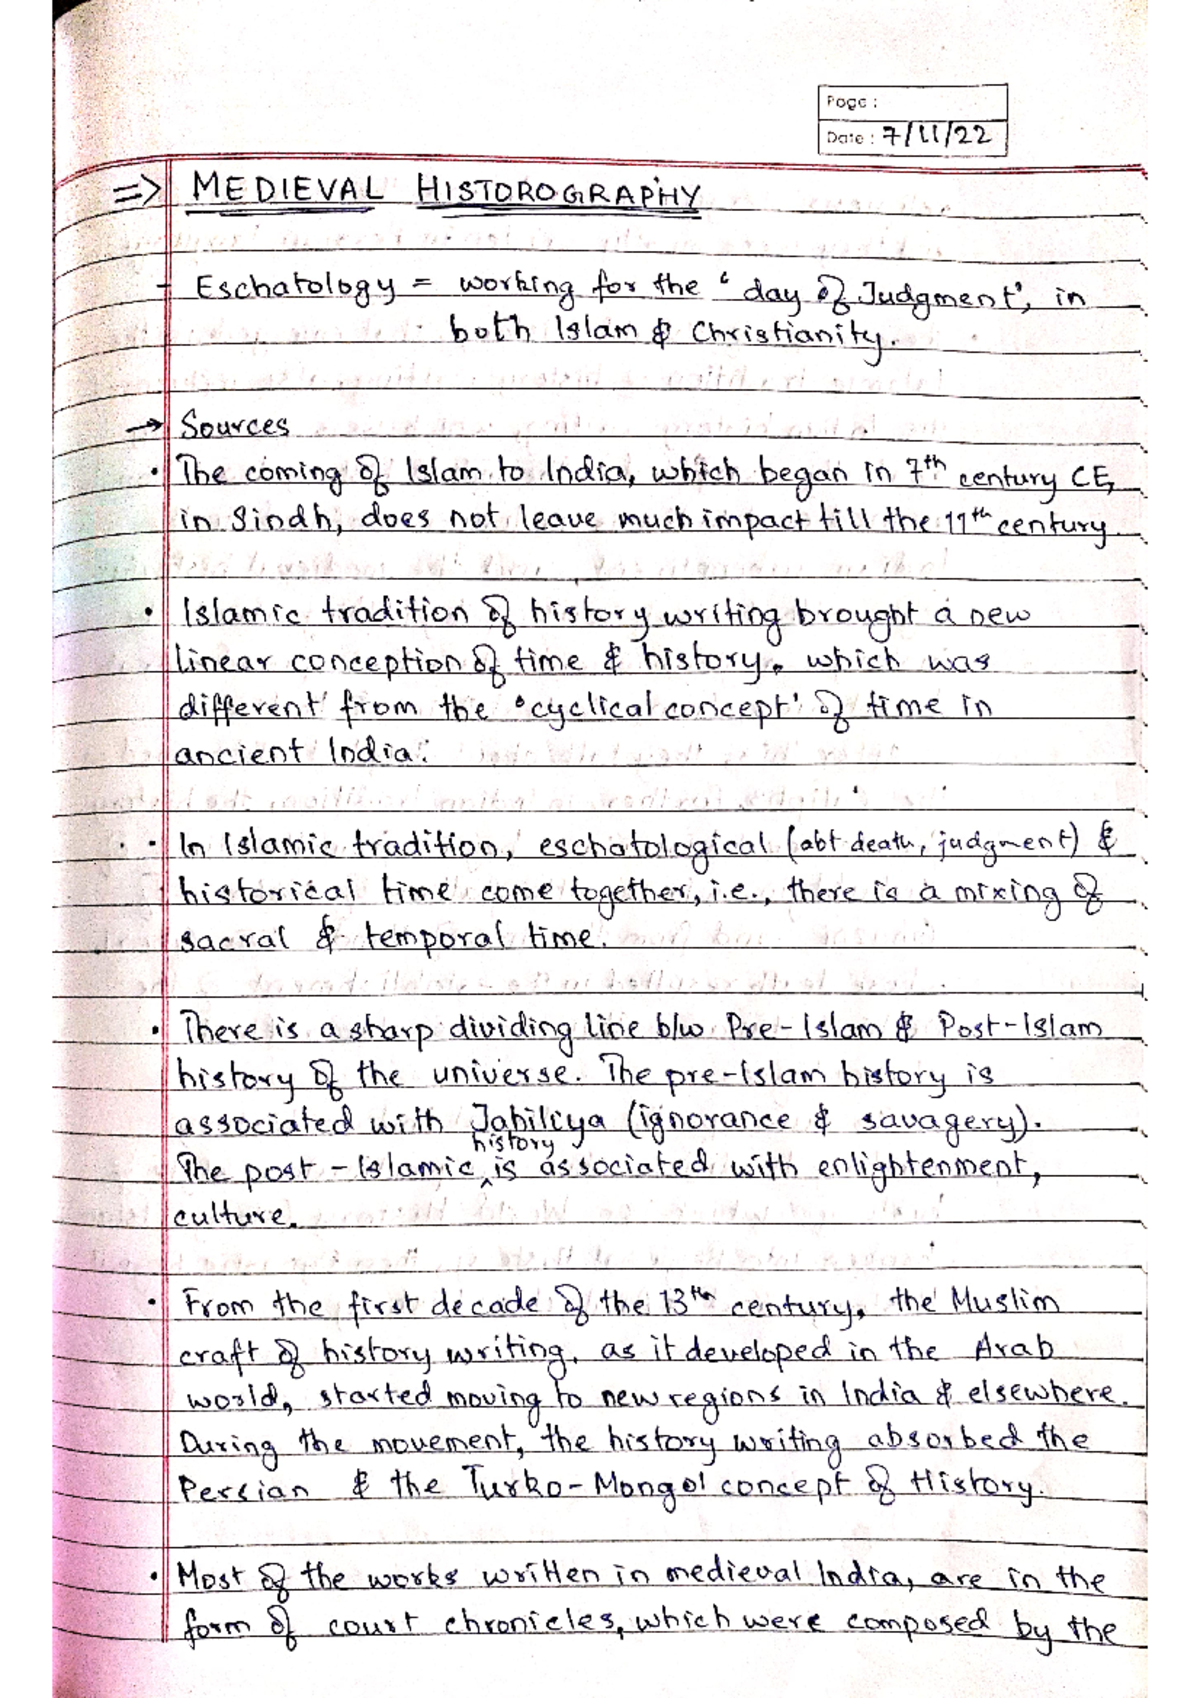 Page :
Date : 7/11/22
=> MEDIEVAL HISTOROGRAPHY
- Eschatology = working for the 'day of Judgment', in
both Islam & Christianity.
→ Sources
• The coming of Islam to India, which began in 7th century CE,
in Sindh, does not leave much impact till the 11th century.
• Islamic tradition of history writing brought a new
linear conception of time & history, which was
different from the 'cyclical concept' of time in
ancient India.
• In Islamic tradition, eschatological (abt death, judgment) &
historical time come together, i.e., there is a mixing of
sacral & temporal time.
• There is a sharp dividing line b/w Pre-Islam & Post-Islam
history of the universe. The pre-Islam history is
associated with Jahiliya (ignorance & savagery).
history
The post-Islamic ^ is associated with enlightenment,
culture.
• From the first decade of the 13th century, the Muslim
craft of history writing, as it developed in the Arab
world, started moving to new regions in India & elsewhere.
During the movement, the history writing absorbed the
Persian & the Turko-Mongol concept of History.
• Most of the works written in medieval India, are in the
form of court chronicles, which were composed by the